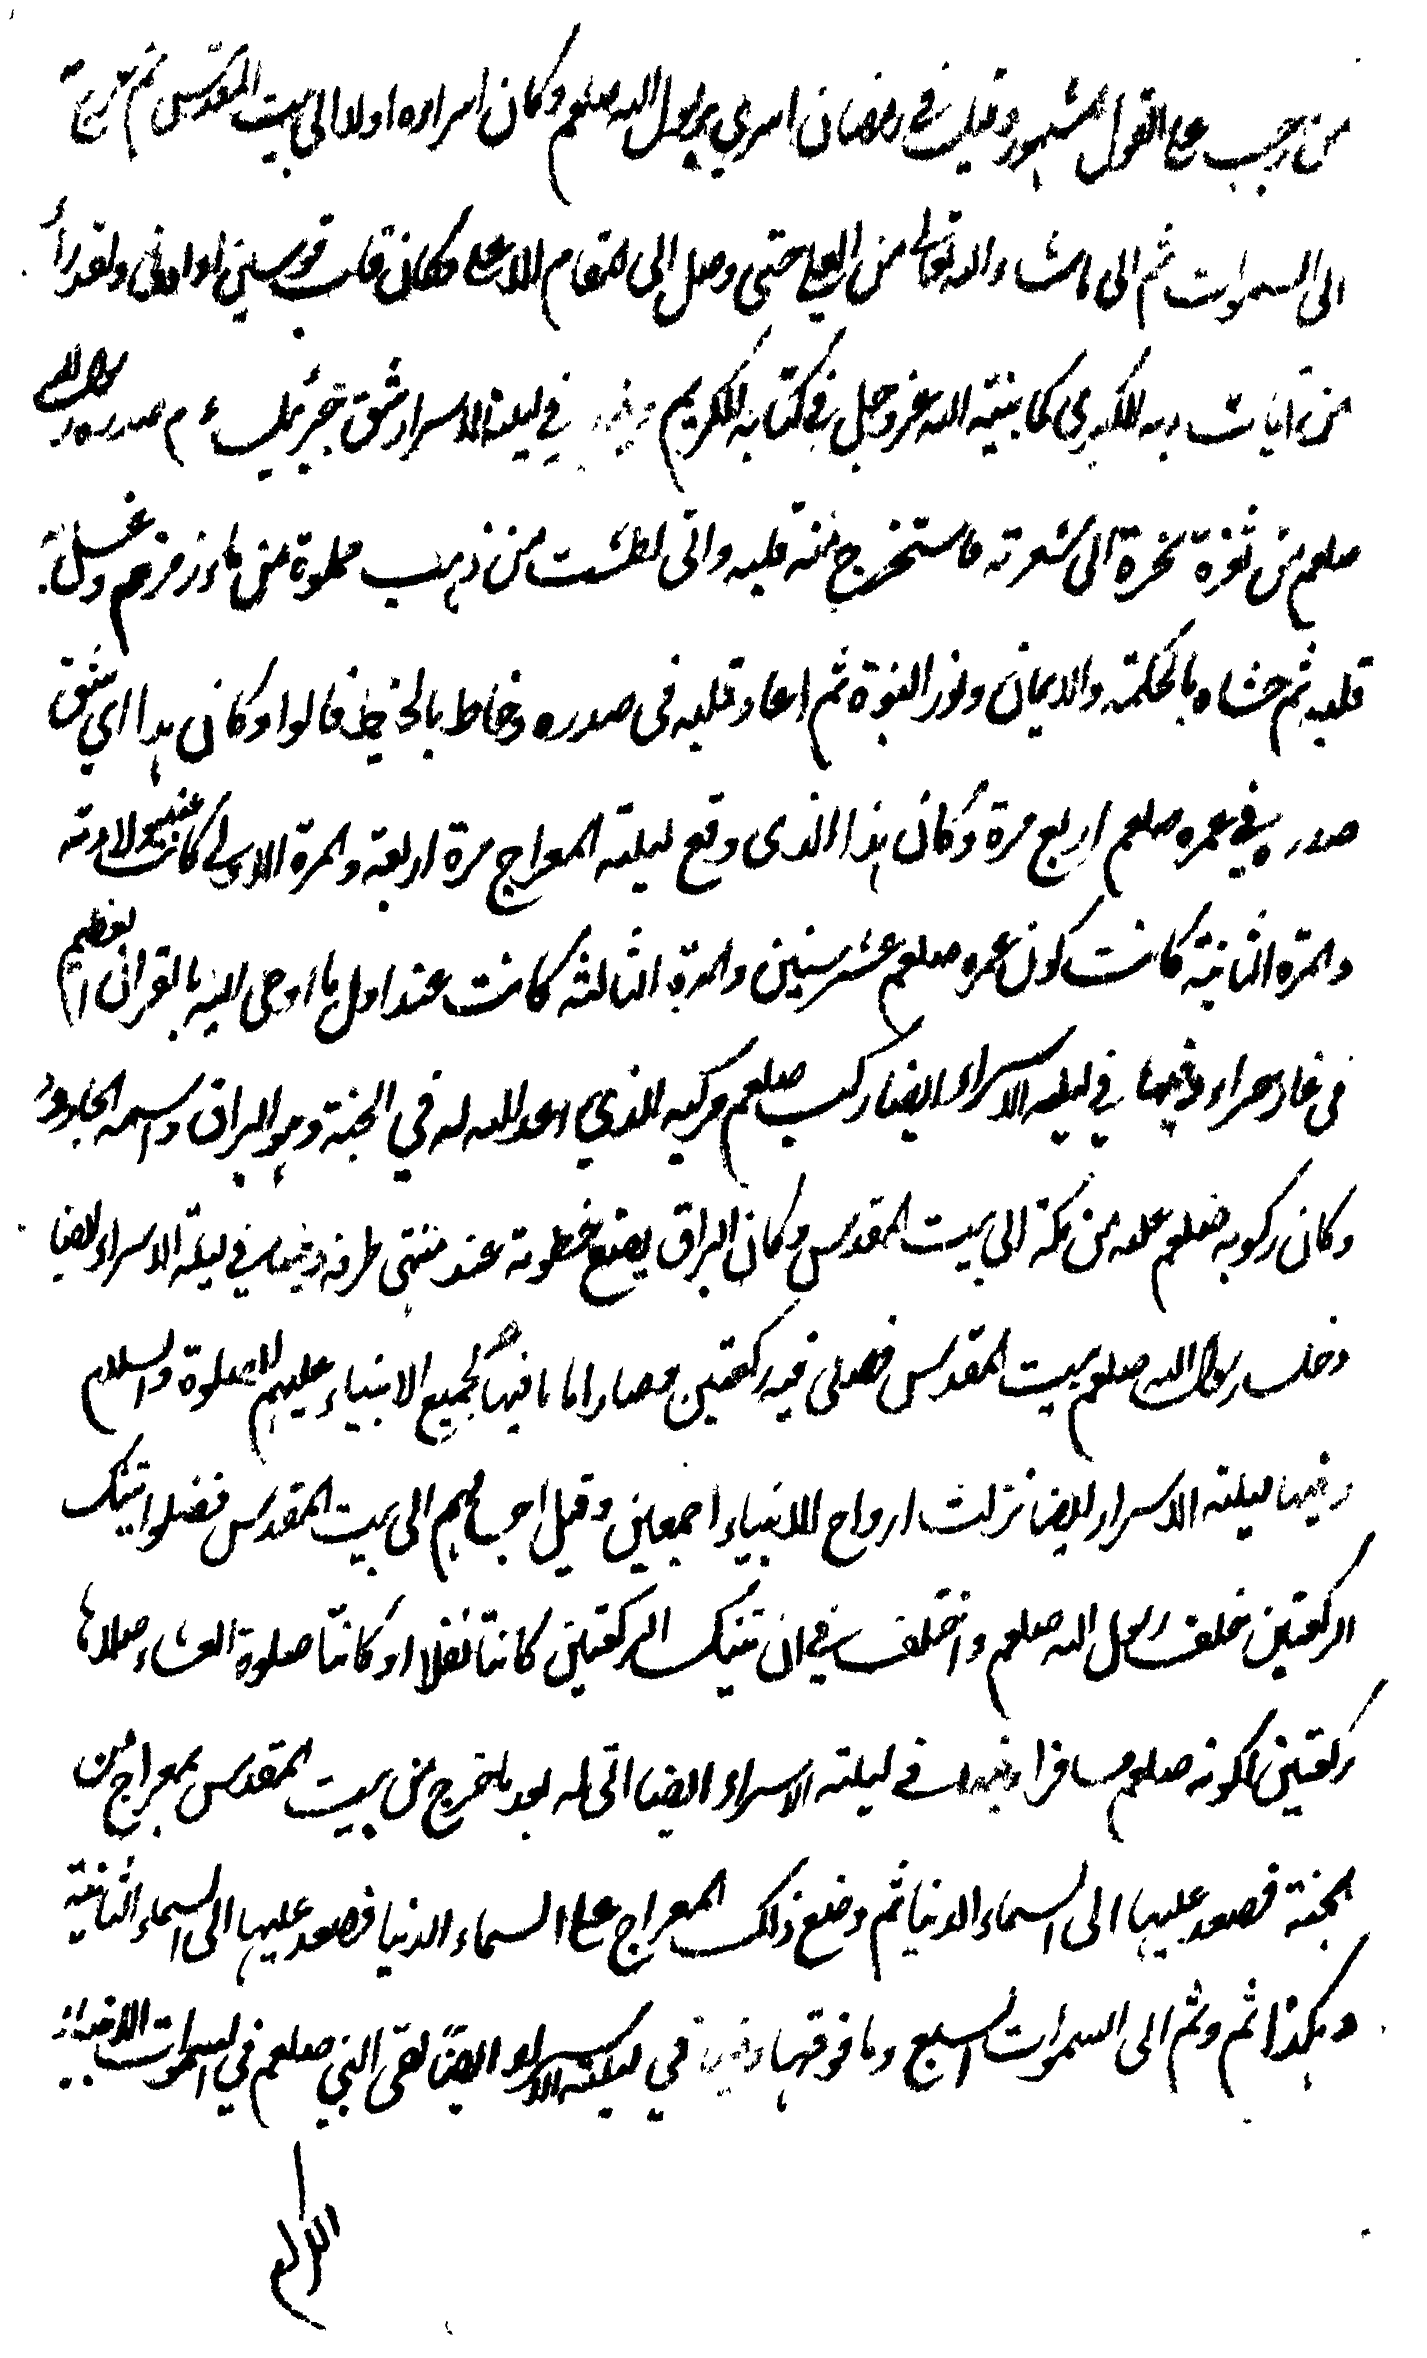 من رجب على القول المشهور وقيل في رمضان اسري برسول الله صلعم وكان اسراوه اولا الى بيت المقدس ثم عرج به
الى السموات ثم الى ماشاء الله تعالى من العلى حتى وصل الى المقام الاعلى وكان قاب قوسين او ادنى ولقد رأ
من آيات ربه الكبرى كما بينه الله عز وجل في كتابه الكريم وفيها في ليلة الاسراء شق جبرئيل ءم صدر رسول الله
صلعم من ثغرة نحره الى شعرته فاستخرج منه قلبه واتى لطشت من ذهب مملوة من ماء زمزم وغسل به
قلبه ثم حشاه بالحكمة والايمان ونور النبوة ثم اعاد قلبه فى صدره وخاط بالخيط قالوا وكان هذا اي شق
صدره في عمره صلعم اربع مرة وكان هذا الذى وقع ليلته المعراج مرة اربعة والمرة الاولى كانت عند ولادته
والمرة الثانية كانت كون عمره صلعم عشر سنين والمرة الثالثه كانت عند اول ما اوحى اليه بالقران العظيم
فى غار حراء وفيها في ليلة الاسراء ايضا ركب صلعم مركبه الذي اعد الله له في الجنة وهو البراق واسمه الجارود
وكان ركوبه صلعم عليه من مكة الى بيت المقدس وكان البراق يضع خطوته عند منتهى طرفه وفيها في ليلة الاسراء ايضا
دخل رسول الله صلعم بيت المقدس فصلى فيه ركعتين وصار اماما فيها لجميع الانبياء عليهم الصلوة والسلام
وفيها ليلته الاسراء ايضا نزلت ارواح الانبياء اجمعين وقيل اجسامهم الى بيت المقدس فصلوا تينك
الركعتين خلف رسول الله صلعم واختلف في ان تينك الركعتين كانتا نفلا او كانتا صلوة العشاء صلاها
ركعتين لكونه صلعم مسافرا وفيها في ليلته الاسراء ايضا اتى له بعد ما خرج من بيت المقدس بمعراج من
الجنة فصعد عليها الى السماء الدنيا ثم وضع ذلك المعراج على السماء الدنيا فصعد عليها الى السماء الثانية
وهكذا ثم وثم الى السموات السبع وما فوقها وفيها في ليلته الاسراء ايضا لقى النبي صلعم في السموات الانبياء
الكرام